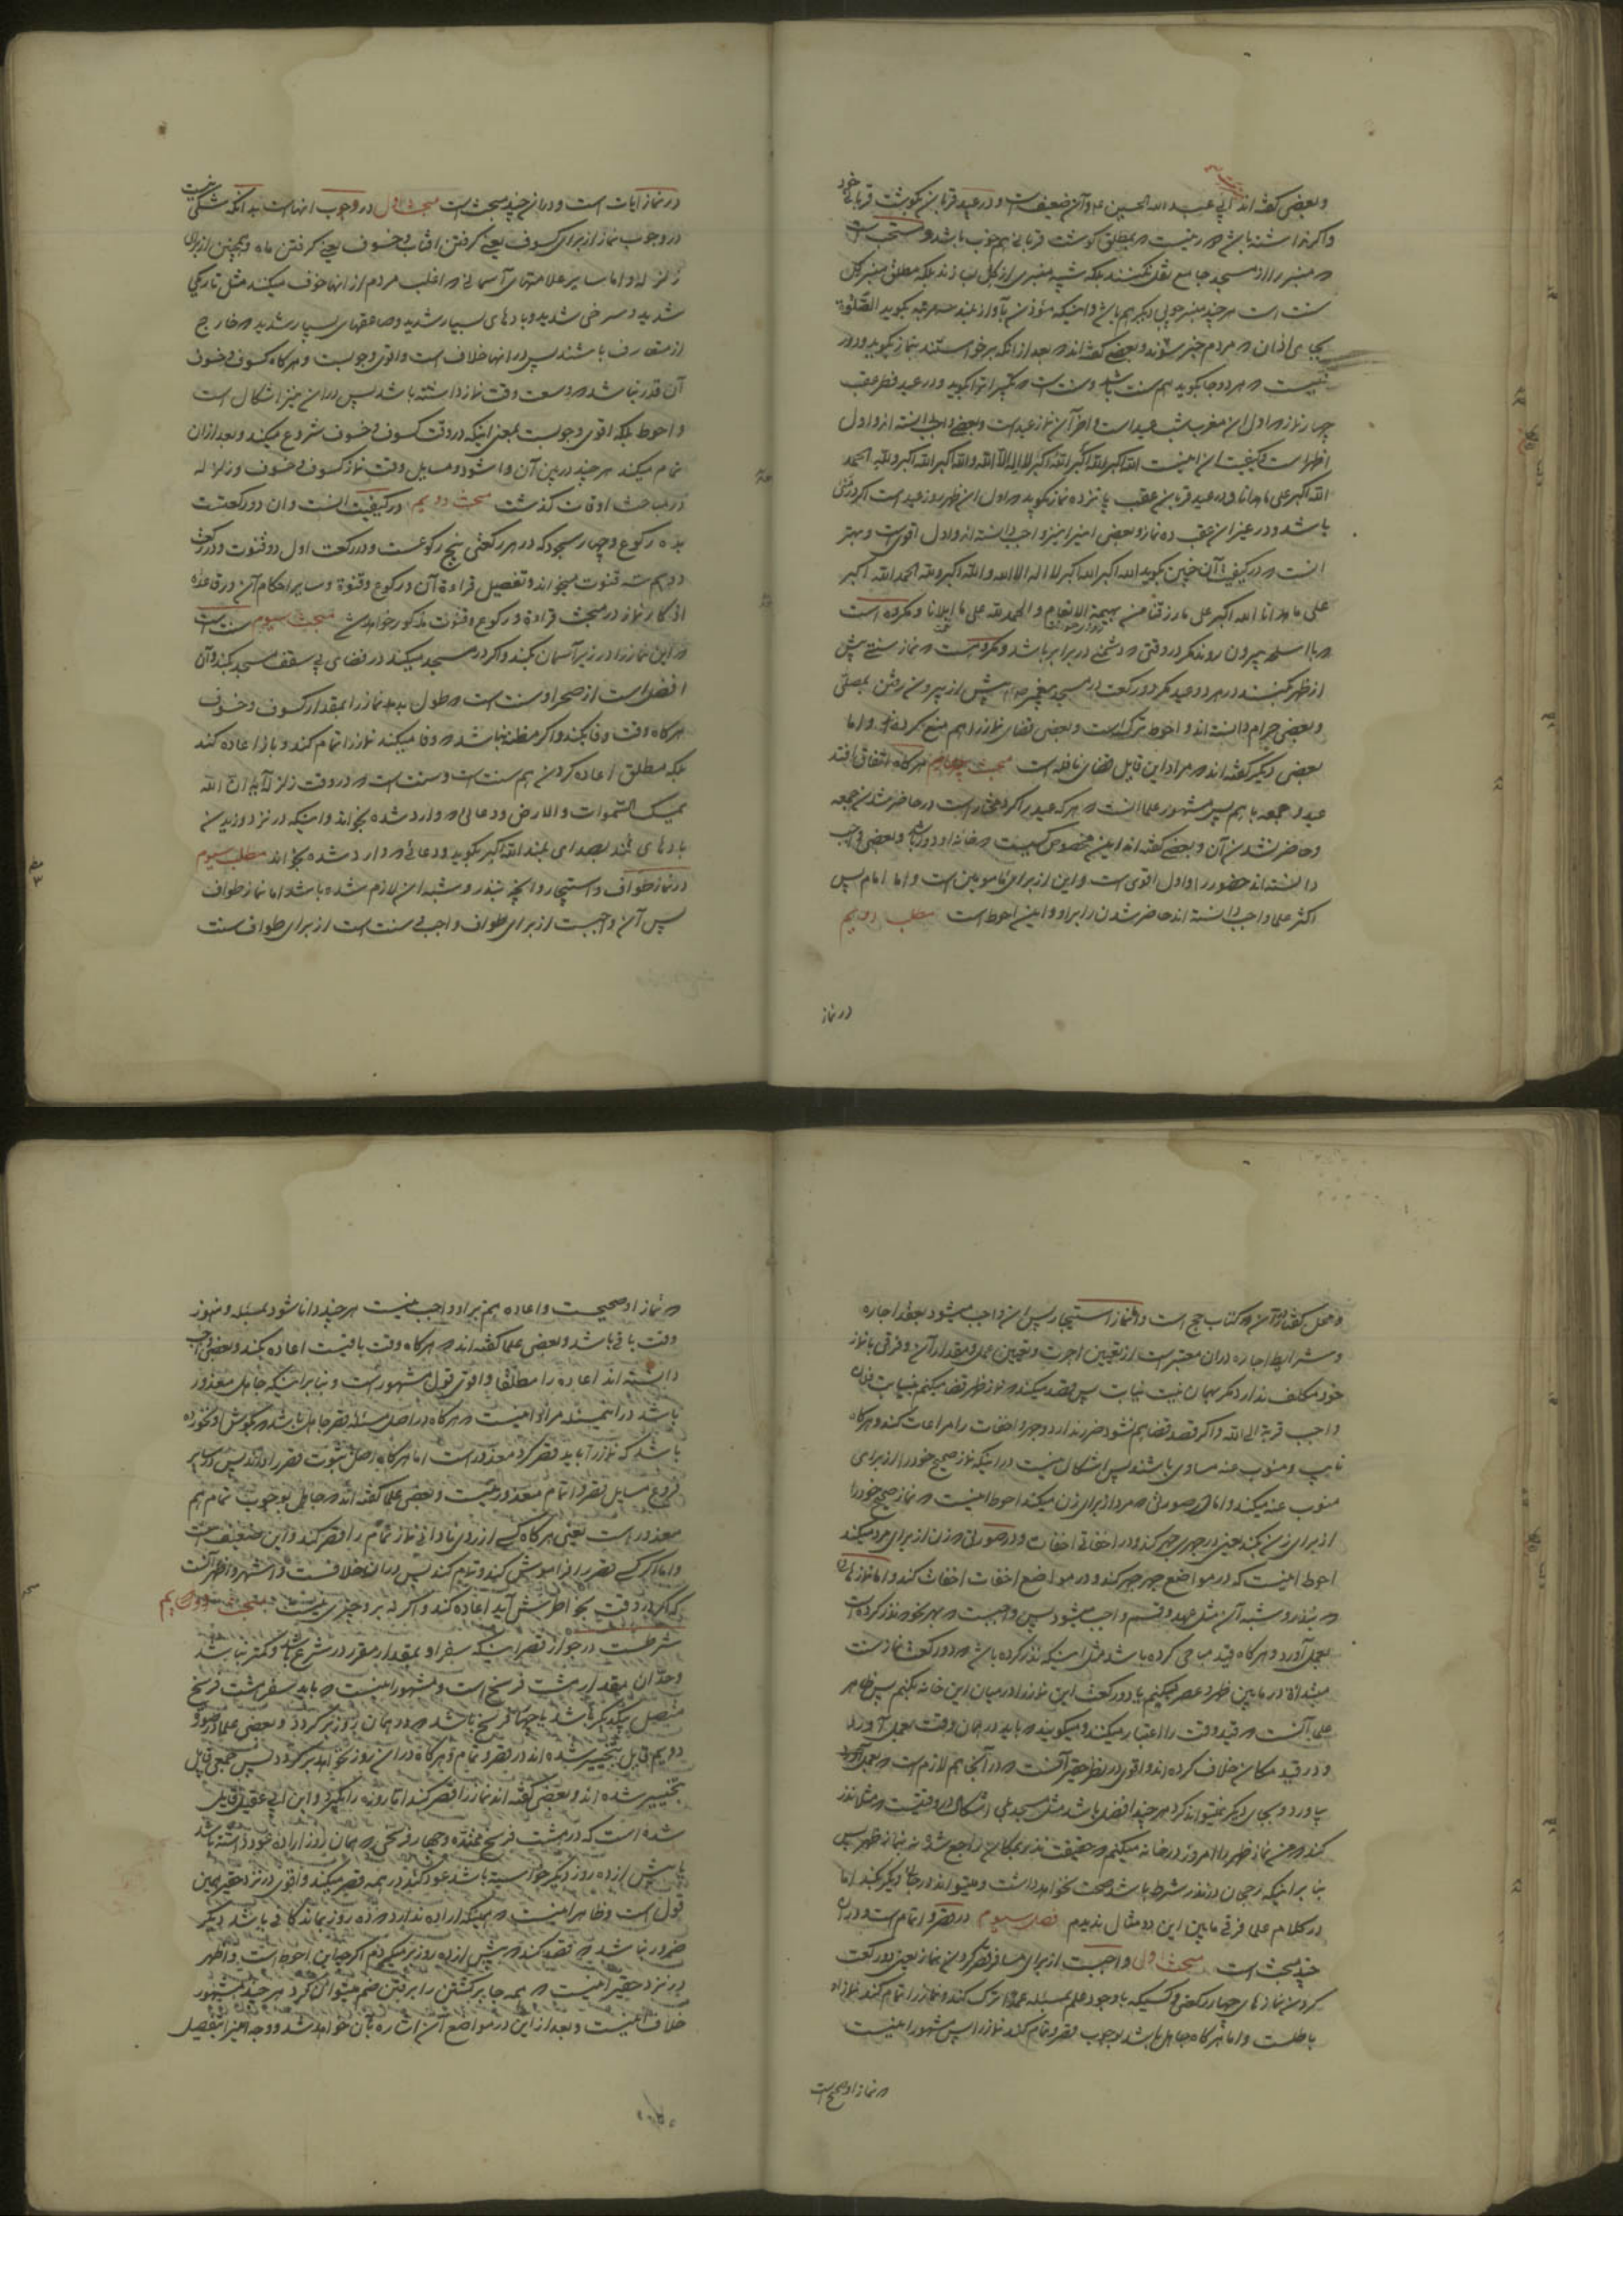 وبعضی گفته‌اند ابی عبد الله الحسین ع و آن ضعیف است و در عید قربان بگوشت قربانی خود
واگر نداشته باشد ضرر نیست که بمطلق گوشت قربانی هم خوب باشد و سنت است
که منبر را از مسجد جامع نقل نکنند بلکه شبیه منبری از گل بسازند بلکه مطلق منبر گل
سنت است هر چند منبر چوبی دیگر هم باشد و اینکه مؤذن بآواز بلند سه مرتبه بگوید الصلوة
بجای اذان که مردم خبر شوند و بعضی گفته‌اند که بعد از انکه برخواستند بنماز بگوید و دور
نیست که هر دو جا بگوید هم سنت باشد و سنت است که تکبیرات را بگوید و در عید فطر عقب
چهار نماز که اول ان مغرب شب عید است و اخر آن نماز عید است و بعضی واجب دانسته‌اند و اول
اظهر است و کیفیت ان اینست الله اکبر الله اکبر لا اله الا الله والله اکبر الله اکبر ولله الحمد
الله اکبر علی ما هدانا و در عید قربان عقب پانزده نماز بگوید که اول ان ظهر روز عید است اگر در منی
باشد و در غیر ان عقب ده نماز و بعضی این را نیز واجب دانسته‌اند و اول اقوی است و بهتر
انست که در کیفیت آن چنین بگوید الله اکبر الله اکبر لا اله الا الله والله اکبر ولله الحمد الله اکبر
علی ما هدانا الله اکبر علی ما رزقنا من بهیمة الانعام والحمد لله علی ما ابلانا و مکروه است
که با اسلحه بیرون روند مگر در وقتی که دشمنی در برابر باشد و مکروه است که نماز سنتی پیش
از ظهر بکنند در هر دو عید مگر دو رکعت در مسجد پیغمبر ص پیش از بیرون رفتن بمصلی
وبعضی حرام دانسته‌اند و احوط ترک است و بعضی قضای نماز را هم منع کرده‌اند و اما
بعضی دیگر گفته‌اند که مراد این قایل قضای نافله است مبحث چهارم هر گاه اتفاق افتد
عید و جمعه با هم پس مشهور علما انست که هر که عید را کرد مختار است در حاضر شدن جمعه
و حاضر نشدن آن و بعضی گفته‌اند این مخصوص کسیست که خانه او دور باشد و بعضی واجب
دانسته‌اند حضور را و اول اقوی است و این از برای مأمومین است و اما امام پس
اکثر علما واجب دانسته‌اند حاضر شدن را بر او و این احوط است مطلب دویم
در نماز
در نماز آیات است و در ان چند مبحث است مبحث اول در وجوب انهاست بدانکه شکی نیست
در وجوب نماز از برای کسوف یعنی گرفتن افتاب و خسوف یعنی گرفتن ماه و همچنین از برای
زلزله و اما سایر علامتهای آسمانی که اغلب مردم از انها خوف میکنند مثل تاریکی
شدید و سرخی شدید و بادهای بسیار شدید و صاعقهای بسیار شدید که خارج
از متعارف باشند پس در انها خلاف است و اقوی وجوبست و هر گاه کسوف و خسوف
آن قدر نباشد که وسعت وقت نماز داشته باشد پس در ان نیز اشکال است
و احوط بلکه اقوی وجوبست بمعنی اینکه در وقت کسوف و خسوف شروع میکند و بعد از ان
تمام میکند هر چند در بین آن وا شود و مسایل وقت نماز کسوف و خسوف و زلزله
در مباحث اوقات گذشت مبحث دویم در کیفیت انست و ان دو رکعتست
بده رکوع و چهار سجود که در هر رکعتی پنج رکوعست و در رکعت اول دو قنوت و در رکعت
دویم سه قنوت میخواند و تفصیل قراءة آن و رکوع و قنوة و سایر احکام آن و در قاعده
اذکار نماز در مبحث قراءة و رکوع و قنوت مذکور خواهد شد مبحث سیوم سنت است
که این نماز را در زیر آسمان بکند و اگر در مسجد میکند در فضای بی سقف مسجد بکند و آن
افضل است از صحرا و سنت است که طول بدهد نماز را بمقدار کسوف و خسوف
هر گاه وقت وفا بکند و اگر مظنه نباشد که وفا میکند نماز را تمام کند و باز اعاده کند
بلکه مطلق اعاده کردن هم سنت است و سنت است که در وقت زلزله آیه ان الله
یمسک السموات والارض و دعائی که وارد شده بخواند و اینکه در نزد وزیدن
بادهای تند بصدای بلند الله اکبر بگوید و دعائی که وارد شده بخواند مطلب سیوم
در نماز طواف و استیجار و انچه بنذر و شبه ان لازم شده باشد اما نماز طواف
پس آن واجبست از برای طواف واجب و سنت است از برای طواف سنت
و محل کیفیات آن در کتاب حج است و اما نماز استیجار پس ان واجب میشود بعقد اجاره
و شرایط اجاره در ان معتبر است از تعیین اجرت و تعیین عمل و مقدار آن و فرقی با نماز
خود مکلف ندارد مگر بهمان نیت نیابت پس قصد میکند که نماز ظهر قضا میکنم بنیابت فلان
واجب قربة الی الله و اگر قصد قضا هم نشود ضرر ندارد و جهر و اخفات را مراعات کند و هر گاه
نایب و منوب عنه مساوی باشند پس اشکال نیست در اینکه نماز صحیح خود را از برای
منوب عنه میکند و اما در صورتی که مرد از برای زن میکند احوط اینست که نماز صحیح خود را
از برای زن بکند یعنی در جهری جهر کند و در اخفاتی اخفات و در صورتی که زن از برای مرد میکند
احوط اینست که در مواضع جهر جهر کند و در مواضع اخفات اخفات کند و اما نمازهای
که بنذر و شبه آن مثل عهد و قسم واجب میشود پس واجبست که بهر نحو که نذر کرده است
بعمل آورد و هر گاه قید مباحی کرده باشد مثل اینکه نذر کرده باشد که دو رکعت نماز سنت
مبتدأة در مابین ظهر و عصر میکنم یا دو رکعت این نماز را در میان این خانه بکنم پس ظاهر
علما آنست که قید وقت را اعتبار میکنند و میگویند که باید در همان وقت بعمل آورد
و در قید مکان خلاف کرده‌اند و اقوی در نظر حقیر آنست که در آنجا هم لازم است که بعمل آورد
بیاورد و بجای دیگر نمیتواند کرد هر چند افضل باشد مثل مسجد بلی اشکال در وقتیست که مثلا نذر
کند که من نماز ظهر را امروز در خانه میکنم که حقیقت نذر بمکان راجع شود نه بنماز ظهر پس
بنا بر اینکه رجحان در نذر شرط باشد صحت نخواهد داشت و میتواند در جای دیگر بکند اما
در کلام علما فرقی مابین این دو مثال ندیدم فصل سیوم در قصر و اتمام است و در ان
چند مبحث است مبحث اول واجبست از برای مسافر قصر کردن نماز یعنی دو رکعت
کردن نمازهای چهار رکعتی و کسیکه با وجود علم بمسئله عمدا ترک کند و نماز را تمام کند نماز او
باطلست و اما هر گاه جاهل باشد بوجوب قصر و تمام کند نماز را پس مشهور اینست
که نماز او صحیح است
که نماز او صحیحست و اعاده هم بر او واجب نیست هر چند دانا شود بمسئله و هنوز
وقت باقی باشد و بعضی علما گفته‌اند که هر گاه وقت باقیست اعاده بکند و بعضی واجب
دانسته‌اند اعاده را مطلقا و اقوی قول مشهور است و بنا بر اینکه جاهل معذور
باشد در این مسئله مراد اینست که هر گاه در اصل مسئله قصر جاهل باشد که بگوش او نخورده
باشد که نماز را باید قصر کرد معذور است اما هر گاه اصل ثبوت قصر را داند پس در سایر
فروع مسایل قصر و اتمام معذور نیست و بعضی علما گفته‌اند که جاهل بوجوب تمام هم
معذور است یعنی هر گاه کسی از روی نادانی نماز تمام را قصر کند و این ضعیف است
و اما اگر کسی قصر را فراموش کند و تمام کند پس در ان خلافست و اشهر و اظهر انست
که اگر در وقت بخاطرش آید اعاده کند و اگر نه بر او چیزی نیست مبحث دویم
شرطست در جواز قصر اینکه سفر او بمقدار مقرر در شرع باشد و کمتر نباشد
وحد ان بمقدار هشت فرسخ است و مشهور اینست که باید سفر هشت فرسخ
متصل بیکدیگر باشد یا چهار فرسخ باشد که در همان روز بر گردد و بعضی علما در صورت
دویم قایل بتخییر شده‌اند در قصر و تمام و هر گاه در ان روز نخواهد بر گردد پس جمعی قایل
بتخییر شده‌اند و بعضی گفته‌اند نماز را قصر کند اما روزه را بگیرد و ابن ابی عقیل قایل
شده است که در هشت فرسخ ممتد و چهار فرسخی که همان روز اراده عود داشته باشد
یا پیش از ده روز دیگر خواسته باشد عود کند در همه قصر میکند و اقوی در نزد حقیر همین
قول است و ظاهر اینست که همینکه اراده ندارد که ده روز بماند کافی باشد دیگر
ضرور نباشد که قصد کند که پیش از ده روز بر میگردم اگر چه این احوط است و اظهر
در نزد حقیر اینست که همه جا برگشتن را برفتن ضم میتوان کرد هر چند مشهور
خلاف اینست و بعد از این در مواضع آن اشاره بآن خواهد شد و وجه این را بتفصیل